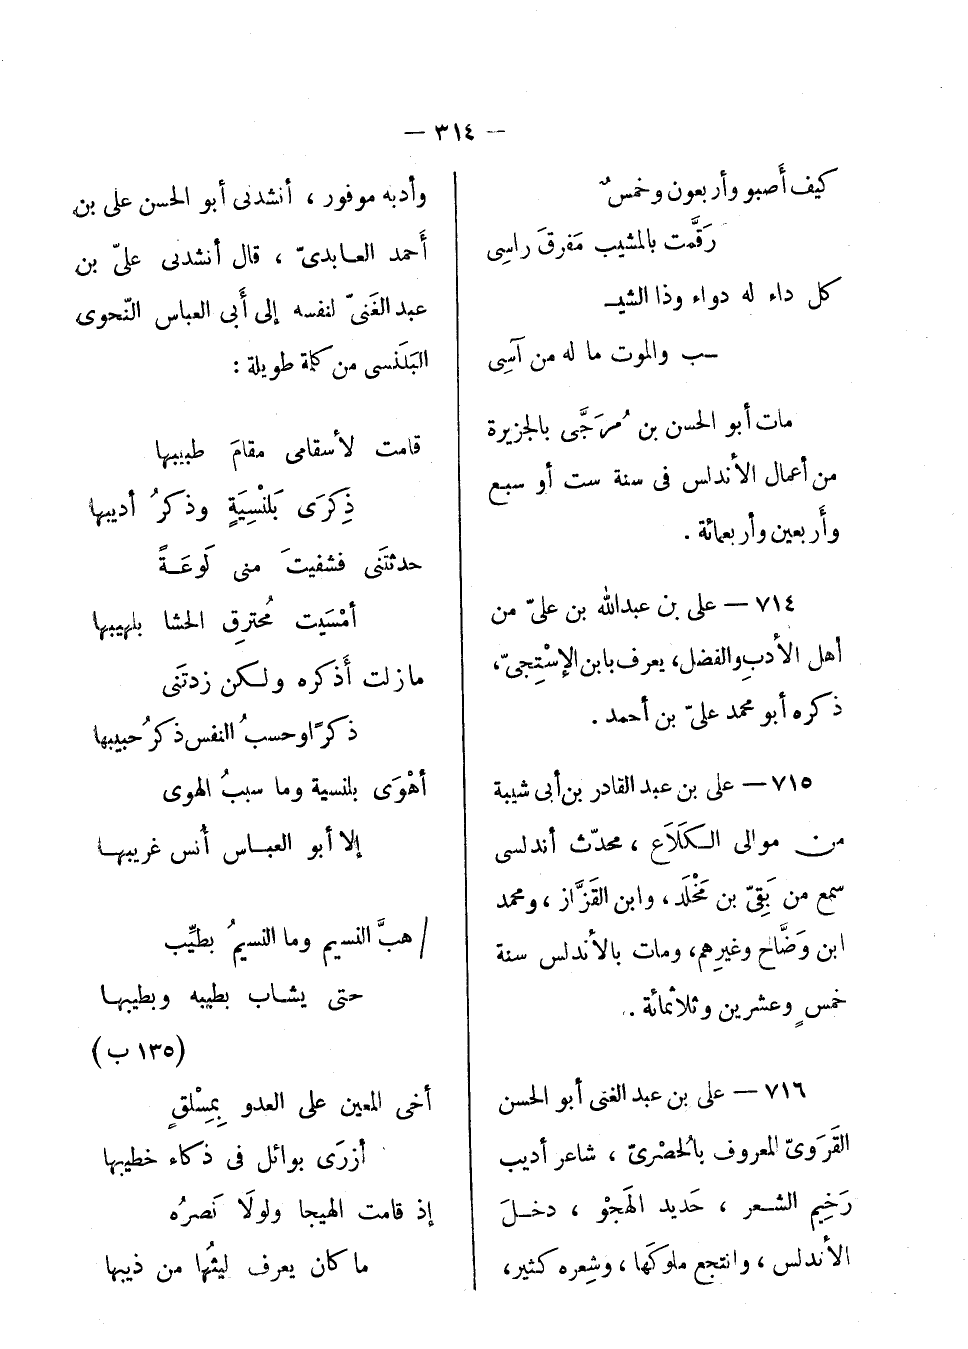 — ٣١٤ —
كيف أَصبو وأربعون وخمسٌ
رَقَّمت بالمشيب مَفرقَ راسِى
كل داء له دواء وذا الشيـ
ـب والموت ما له من آسِى
مات أبو الحسن بن مُرَجَّى بالجزيرة
من أعمال الأندلس فى سنة ست أو سبع
وأَربعين وأربعمائة .
٧١٤ — على بن عبد الله بن علىّ من
أهل الأدبِ والفضل، يعرف بابن الإسْتِجىّ،
ذكره أبو محمد علىّ بن أحمد .
٧١٥ — على بن عبد القادر بن أبى شيبة
من موالى الكَلَاَع ، محدّث أندلسى
سمع من بَقِىّ بن مَخْلَد، وابن القَزَّاز ، ومحمد
ابن وَضَّاح وغيرِهم، ومات بالأندلس سنة
خمسٍ وعشرين وثلاثمائة .
٧١٦ — على بن عبد الغنى أبو الحسن
القَرَوىّ المعروف بالُحصْرىّ ، شاعر أديب
رَخِيم الشعر ، حَديد الَهجْو ، دخلَ
الأندلس ، وانتجع ملوكَها ، وشِعره كثير،
وأدبه موفور ، أنشدنى أبو الحسن على بن
أَحمد العابدىّ ، قال أنشدنى علىّ بن
عبد الغَنىّ لنفسه إلى أَبى العباس النّحوى
البَلَنسى من كلمة طويلة :
قامت لأسقامى مقامَ طبيبها
ذِكرَى بَلنْسِيَةٍ وذكرُ أديبها
حدثتَنى فشفيتَ منى لَوعَةً
أمْسَيت مُحترِق الحشا بلهيبها
مازلت أَذكره ولكن زدتَنى
ذكرًا وحسبُ النفس ذكرُ حبيبها
أهْوَى بلنسية وما سببُ الهوى
إلا أبو العباس أُنس غريبها
/ هبَّ النسيم وما النسيمُ بطيِّب
حتى يشاب بطيبه وبطيبها
(١٣٥ ب)
أخى المعين على العدو بِمِسْلقٍ
أزرَى بوائل فى ذكاء خطيبها
إذ قامت الهيجا ولولَا نَصرُه
ما كان يعرف ليثُها من ذيبها